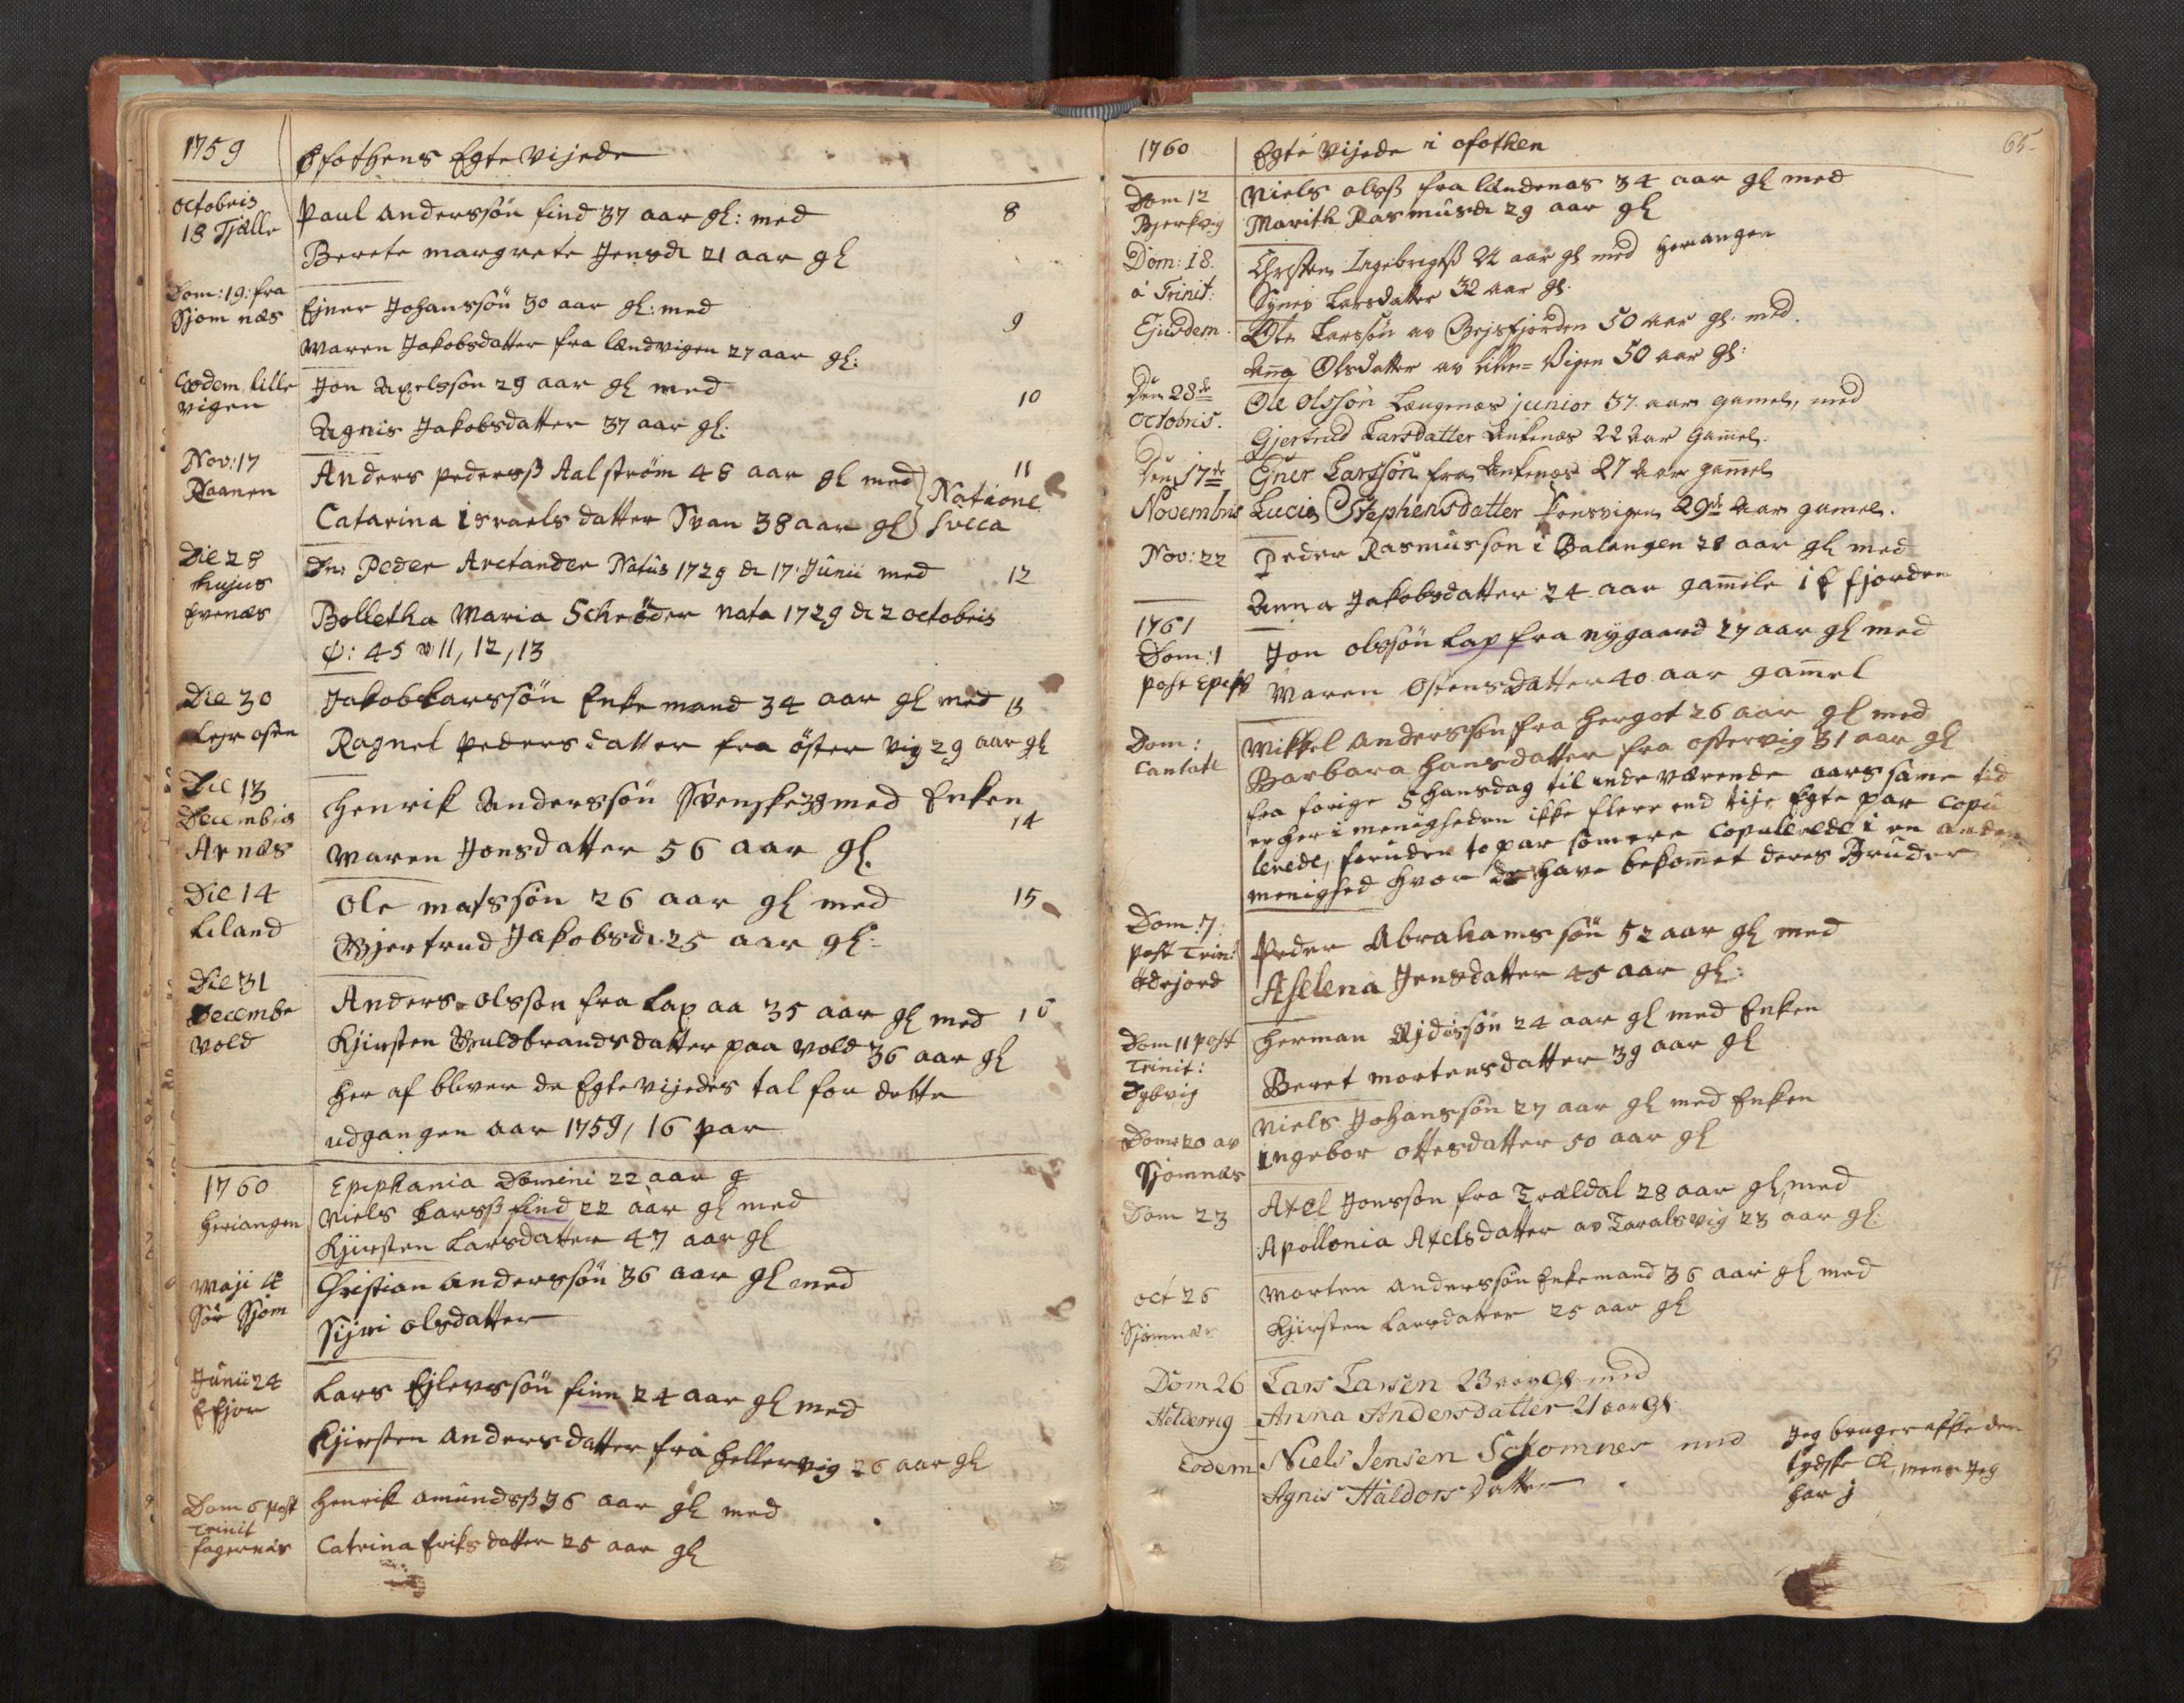 1759
Ofothens Egte Vijede
octobris
18 Tjelle
Paul Anderssøn find 37 aar gl: med
8
Berete margrete Jensdr 21 aar gl
Dom: 19: fra
Sjom næs
Ejner Johanssøn 30 aar gl: med
9
Maren Jakobsdatter fra landvigen 27 aar gl:
Eodem lille
vigen
Jon Axelssøn 29 aar gl med
10
Agnis Jakobsdatter 37 aar gl:
Nov: 17
Raanen
Anders pederss Aalstrøm 48 aar gl med
11
Natione
Catarina israels datter Svan 38 aar gl
Svcca
Die 28
hujus
Evenæs
Dn: Peder Arctander Natus 1729 d 17 Junii med
12
Bolletha Maria Schrøder nata 1729 d 2 octobris
45 v 11, 12, 13
Die 30
Lejr osen
Jakob Larssøn Enke mand 34 aar gl med
13
Ragnel peders datter fra øster vig 29 aar gl
Die 13
Decembris
Arnæs
Henrik Anderssøn Svenske 38 med Enken
14
Maren Jonsdatter 56 aar gl
Die 14
Liland
Ole matssøn 26 aar gl med
15
Gjertrud Jakobsdr 25 aar gl:
Die 31
Decembr
vold
Anders olssøn fra Lapaa 35 aar gl med
16
Kjirsten Guldbrandsdatter paa vold 36 aar gl
her af bliver de Egtevijedes tal for dette
udgangen aar 1759, 16 par
1760
Epiphania Domini 22 aar g
Herjangen
Niels Larss find 22 aar gl med
Kjirsten Larsdatter 47 aar gl
Maji 4
Sør Sjom
Christian Anderssøn 36 aar gl med
Sijri olsdatter
Junii 24
Efjor
Lars Ejlerssøn finn 24 aar gl med
Kjirsten Andersdatter fra Hellervig 26 aar gl
Dom 6 post
Trinit
fagernæs
Henrik Amundss 36 aar gl med
Catrina Eriks datter 25 aar gl
65
1760
Egte Vijede i ofothen
Dom 12
Bjerkvig
Niels olss fra landenas 34 aar gl med
Marith Rasmusdr 29 aar gl
Dom: 18.
à Trinit:
Christen Ingebrigtss 22 aar gl med Herangen
Synev Larsdatter 32 aar gl.
Ejusdem
Ole Larssøn av Bejsfjorden 50 aar gl. med.
Anna Olsdatter av Lille-Vigen 50 aar gl:
Den 28de
Octobris.
Ole Olssøn Længenæs junior 37 aar gamel, med
Gjertrud Larsdatter Ankenæs 22 aar gamel.
Den 17de
Novembris
Ejner Larssøn fra Ankenæs 27 aar gamel
Lucia Stephensdatter 29de aar gamel.
Nov: 22
Peder Rasmussøn i Balangen 28 aar gl med
Anna Jakobsdatter 24 aar gamle i E fjorden
1761
Dom: 1
post Epiph
Jon olssøn Lap fra nygaard 27 aar gl med
Maren Ostensdatter 40 aar gamel
Dom:
Cantate
Mikkel Anderssøn fra Hergot 26 aar gl med
Barbara hansdatter fra ostervig 31 aar gl
fra forige S hansdag til inde værende aars same tid
er her i menigheden ikke flere end tije Egte par copu
lerede, foruden to par som ere copulerede i en anden
menighed hvor de have bekomet deres Bruder
Dom: 7:
post Trin:
Ødejord
Peder Abrahamssøn 52 aar gl med
Aselena Jensdatter 45 aar gl:
Dom 11 post
Trinit:
Dybvig
Herman 24 aar gl med Enken
Beret mortensdatter 39 aar gl
Dom: 20 av
Sjomnæs
Niels Johanssøn 27 aar gl med Enken
ingebor ottesdatter 50 aar gl
Dom 23
Axel Jonssøn fra Trældal 28 aar gl med
Apollonia Axelsdatter av Taralsvig 23 aar gl:
oct 26
Sjomnæs
Morten Anderssøn Enkemand 36 aar gl med
Kjirsten Larsdatter 25 aar gl
Dom 26
Heldervig
Lars Larsen 23 aar gl med
Anna Andersdatter 21 aar gl.
Eodem
Niels Jensen Schomnes med
Agnis Haldors Datter
Jeg bruger ikke den
tydske ch, mens jeg
har j